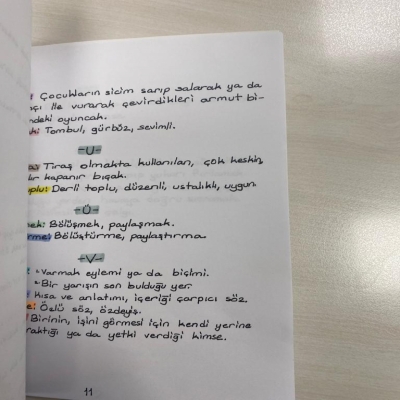 : Çocukların sicim sarıp salarak ya da
çı ile vurarak çevirdikleri armut bi-
ndeki oyuncak.
k: Tombul, gürbüz, sevimli.
-U-
Tıraş olmakta kullanılan, çok keskin,
lır kapanır bıçak.
plu: Derli toplu, düzenli, ustalıklı, uygun.
-Ü-
mek: Bölüşmek, paylaşmak.
rme: Bölüştürme, paylaştırma.
-V-
1. Varmak eylemi ya da biçimi.
2. Bir yarışın son bulduğu yer.
: Kısa ve anlatımı, içeriği çarpıcı söz.
e: Özlü söz, özdeyiş.
Birinin, işini görmesi için kendi yerine
raktığı ya da yetki verdiği kimse.
11